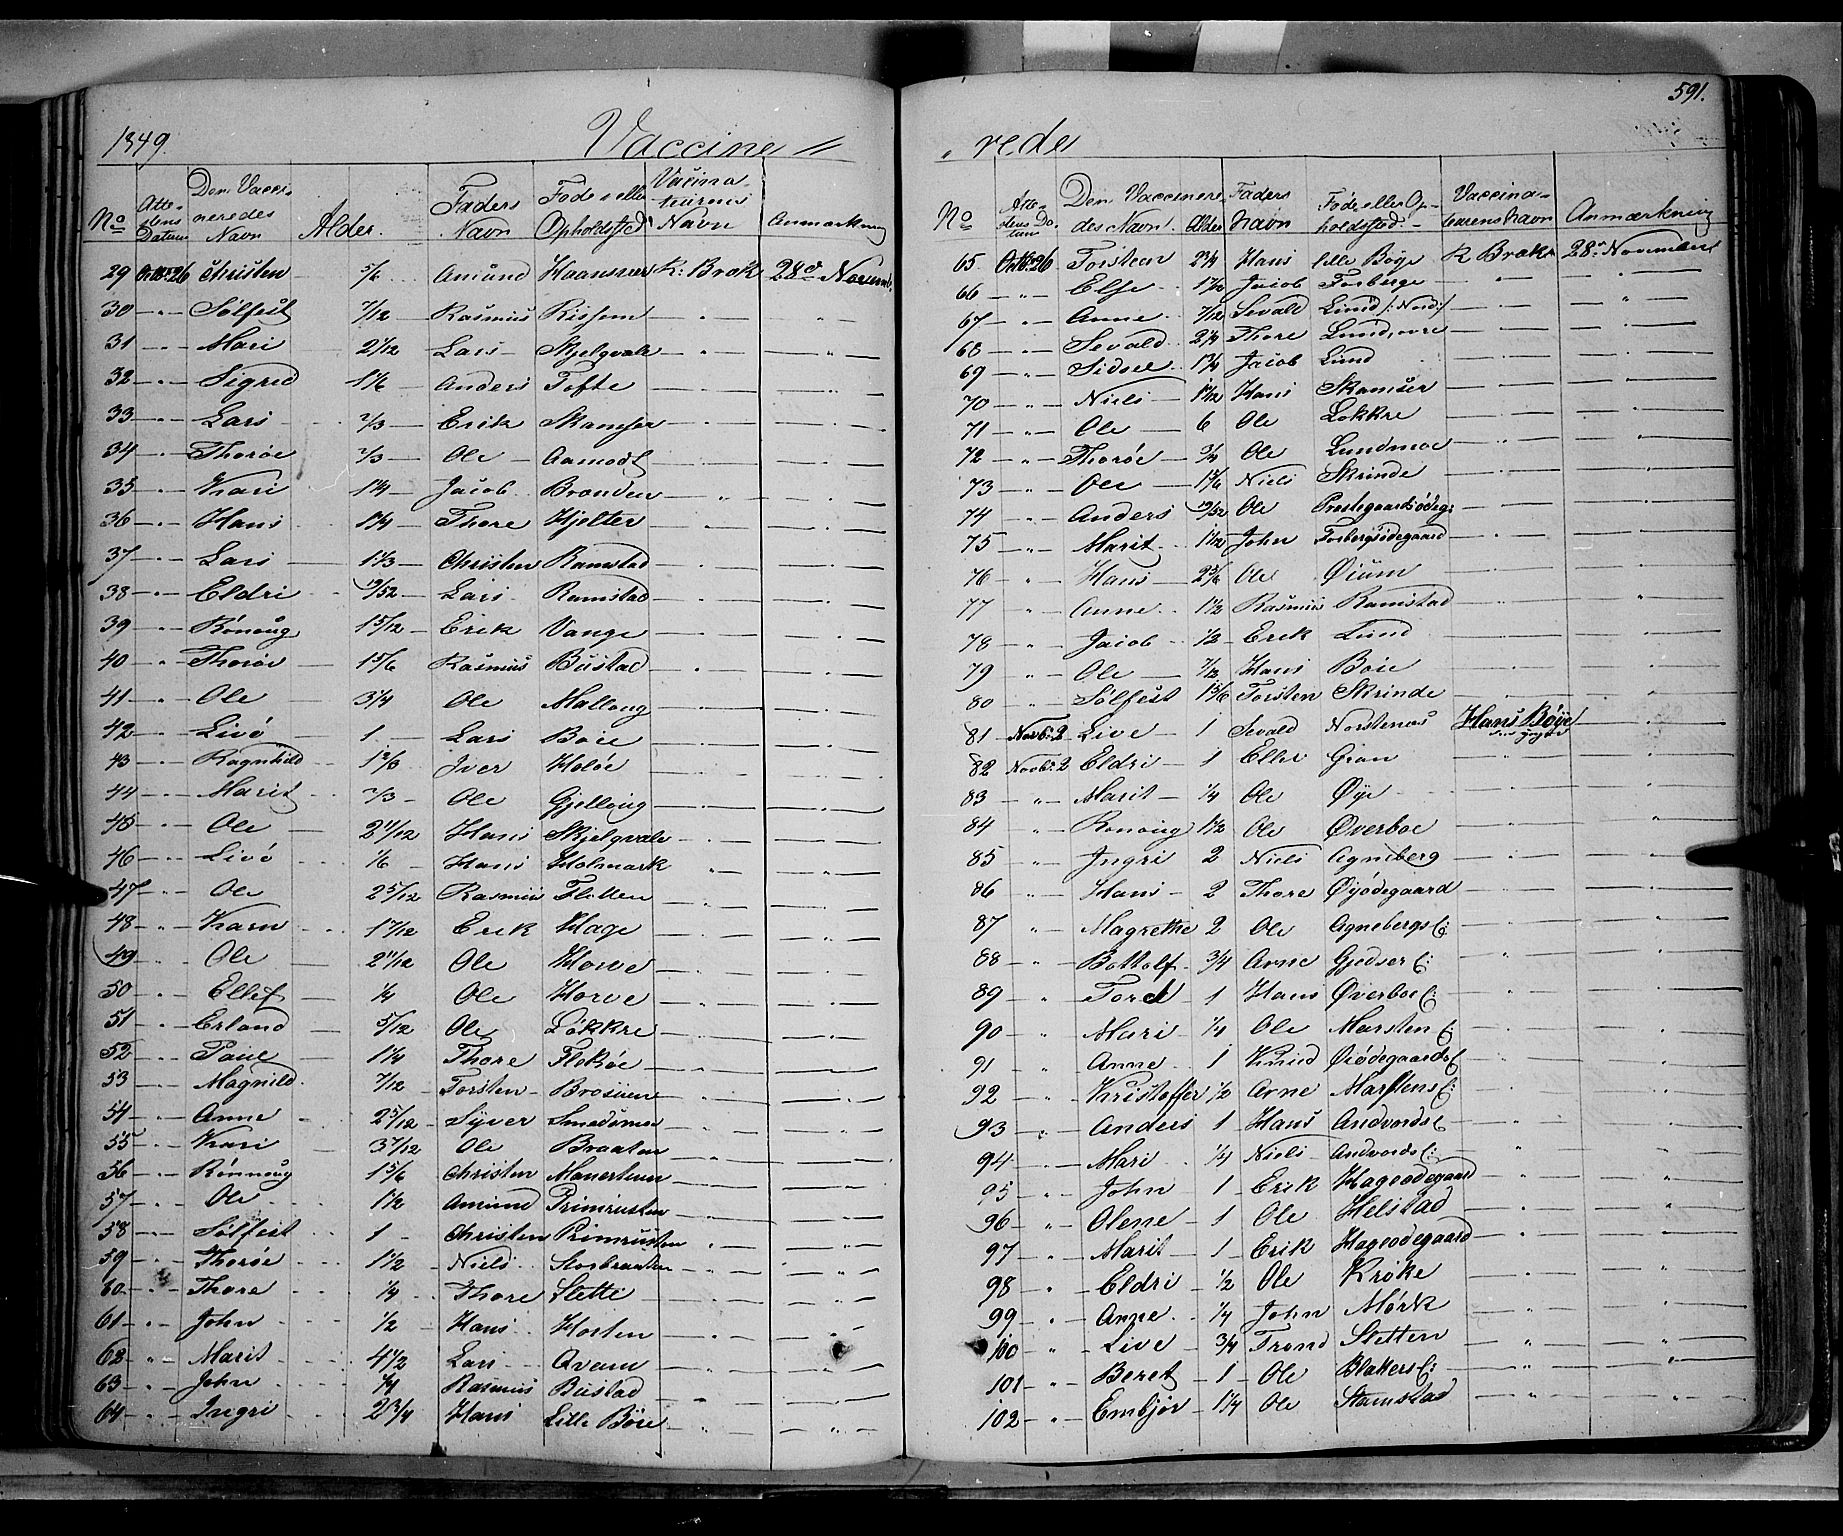 591.
1849. Vaccine = rede
No Atte-stens Datum Den Vacci-neredes Navn Alder. Faders Navn Føde eller Opholdsted Vacina-teurens Navn Anmærkning
29 Octbr 26 Christen 5/6 Amund Haansnæs K: Bræk 28d Novemb.
30 " Sølfest 7/12 Rasmus Rissem " "
31 " Mari 2 1/12 Lars Skjelqvale " "
32 " Sigrid 1 1/6 Anders Tofte
33 " Lars 2/3 Erik Skamsar
34 " Thorøe 2/3 Ole Aamodt
35 " Kari 1 1/4 Jacob Brænden
36 " Hans 1 1/4 Thore Hjelter
37 " Lars 1 1/3 Christen Ramstad
38 " Eldri 19/52 Lars Ramstad
39 " Rønoug 1 5/12 Erik Vange
40 " Thorøe 1 5/6 Rasmus Bustad
41 " Ole 3 1/4 Ole Malloug
42 " Livø 1 Lars Boie
43 " Ragnhild 1 2/3 Iver Holøe
44 " Marit 2/3 Ole Gjelloug
45 " Ole 2 11/12 Hans Skjelqvale
46 " Livø 1/6 Hans Holmark
47 " Ole 2 5/12 Rasmus Flitten
48 " Karn 1 7/12 Erik Hage
49 " Ole 2 11/12 Ole Horve
50 " Ellef 1/4 Ole Horve
51 " Erland 5/12 Ole Løkkre
52 " Paul 1 1/4 Thore Flekøe
53 " Magnild 7/12 Torsten Brosuen
54 " Anne 2 5/12 Syver
55 " Kari 3 7/12 Ole Braaten
56 " Rønnoug 1 5/6 Christen
57 " Ole 1 1/2 Amund Primrusten
58 " Sølfest 1 Christen Primrusten
59 " Thorøe 1 1/2 Niels Storbraaten
60 " Thore 1/4 Thore Slette
61 " John 1/2 Hans Horten
62 " Marit 4 1/2 Lars Qvam
63 " John 1/4 Rasmus Bustad
64 " Ingri 2 3/4 Hans Lille Böie
No Atte-stens Da-tum Den Vaccinere-des Navn Alder Faders Navn Føde eller Op-holdssted Vaccina-teurens Navn Anmærkning
65 Octbr 26 Torsten 2 1/4 Hans Lille Böye K Bræk 28d November
66 " Else 1 1/12 Jacob Forberge
67 " Anne 7/12 Sevald Lund /:Nord:/
68 " Sevald 2 1/4 Thore
69 " Sidsel 1 3/4 Jacob Lund
70 " Niels 1 1/12 Hans Skamsar
71 " Ole 6 Ole Løkkre
72 " Thorøe 3/4 Ole Lundmoe
73 " Ole 1 1/6 Niels Skrinde
74 " Anders 19/52 Ole Prestegaardsødeg:
75 " Marit 1 1/12 John Forbergsødegaard
76 " Hans 2 5/6 Ole Øium
77 " Anne 1 1/2 Rasmus Ramstad
78 " Jacob 1/2 Erik Lund
79 " Ole 7/12 Hans Boie
80 " Sølfest 1 5/6 Torsten Skrinde
81 Novbr 2 Live 1 Sevald Norstenæs Hans Bøye
82 Novbr 2 Eldri 1 Ellef Gran
83 " Marit 1/4 Ole Øye
84 " Ronoug 1 1/2 Ole Øverboe
85 " Ingri 2 Niels Agneberg
86 " Hans 2 Thore Øyødegaard
87 " Magrethe 2 Ole Agnebergs E:
88 " Bottolf 3/4 Arne Gjedser E:
89 " Tord 1 Hans Øverboe E:
90 " Mari 1/4 Ole Marsten E:
91 " Anne 1 Knud Øiødegaards E
92 " Kristoffer 1/2 Arne Marstens E:
93 " Anders 1 Hans Andvords E
94 " Mari 1/4 Niels Andvords E:
95 " John 1 Erik Hageødegaard
96 " Olene 1 Ole Helstad
97 " Marit 1 Erik Hageødegaard
98 " Eldri 1/2 Ole Krøke
99 " Anne 1/4 John Mørk
100 " Live 3/4 Trond Sletten
101 " Beret 1 Ole Blakkers E:
102 " Embjør 1 1/4 Ole Stamstad